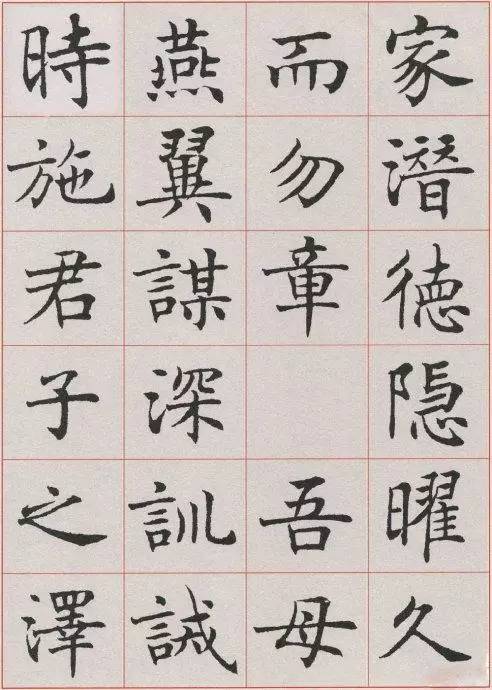 家潛德隠曜久
而勿章 吾母
燕翼謀深訓誡
時施君子之澤